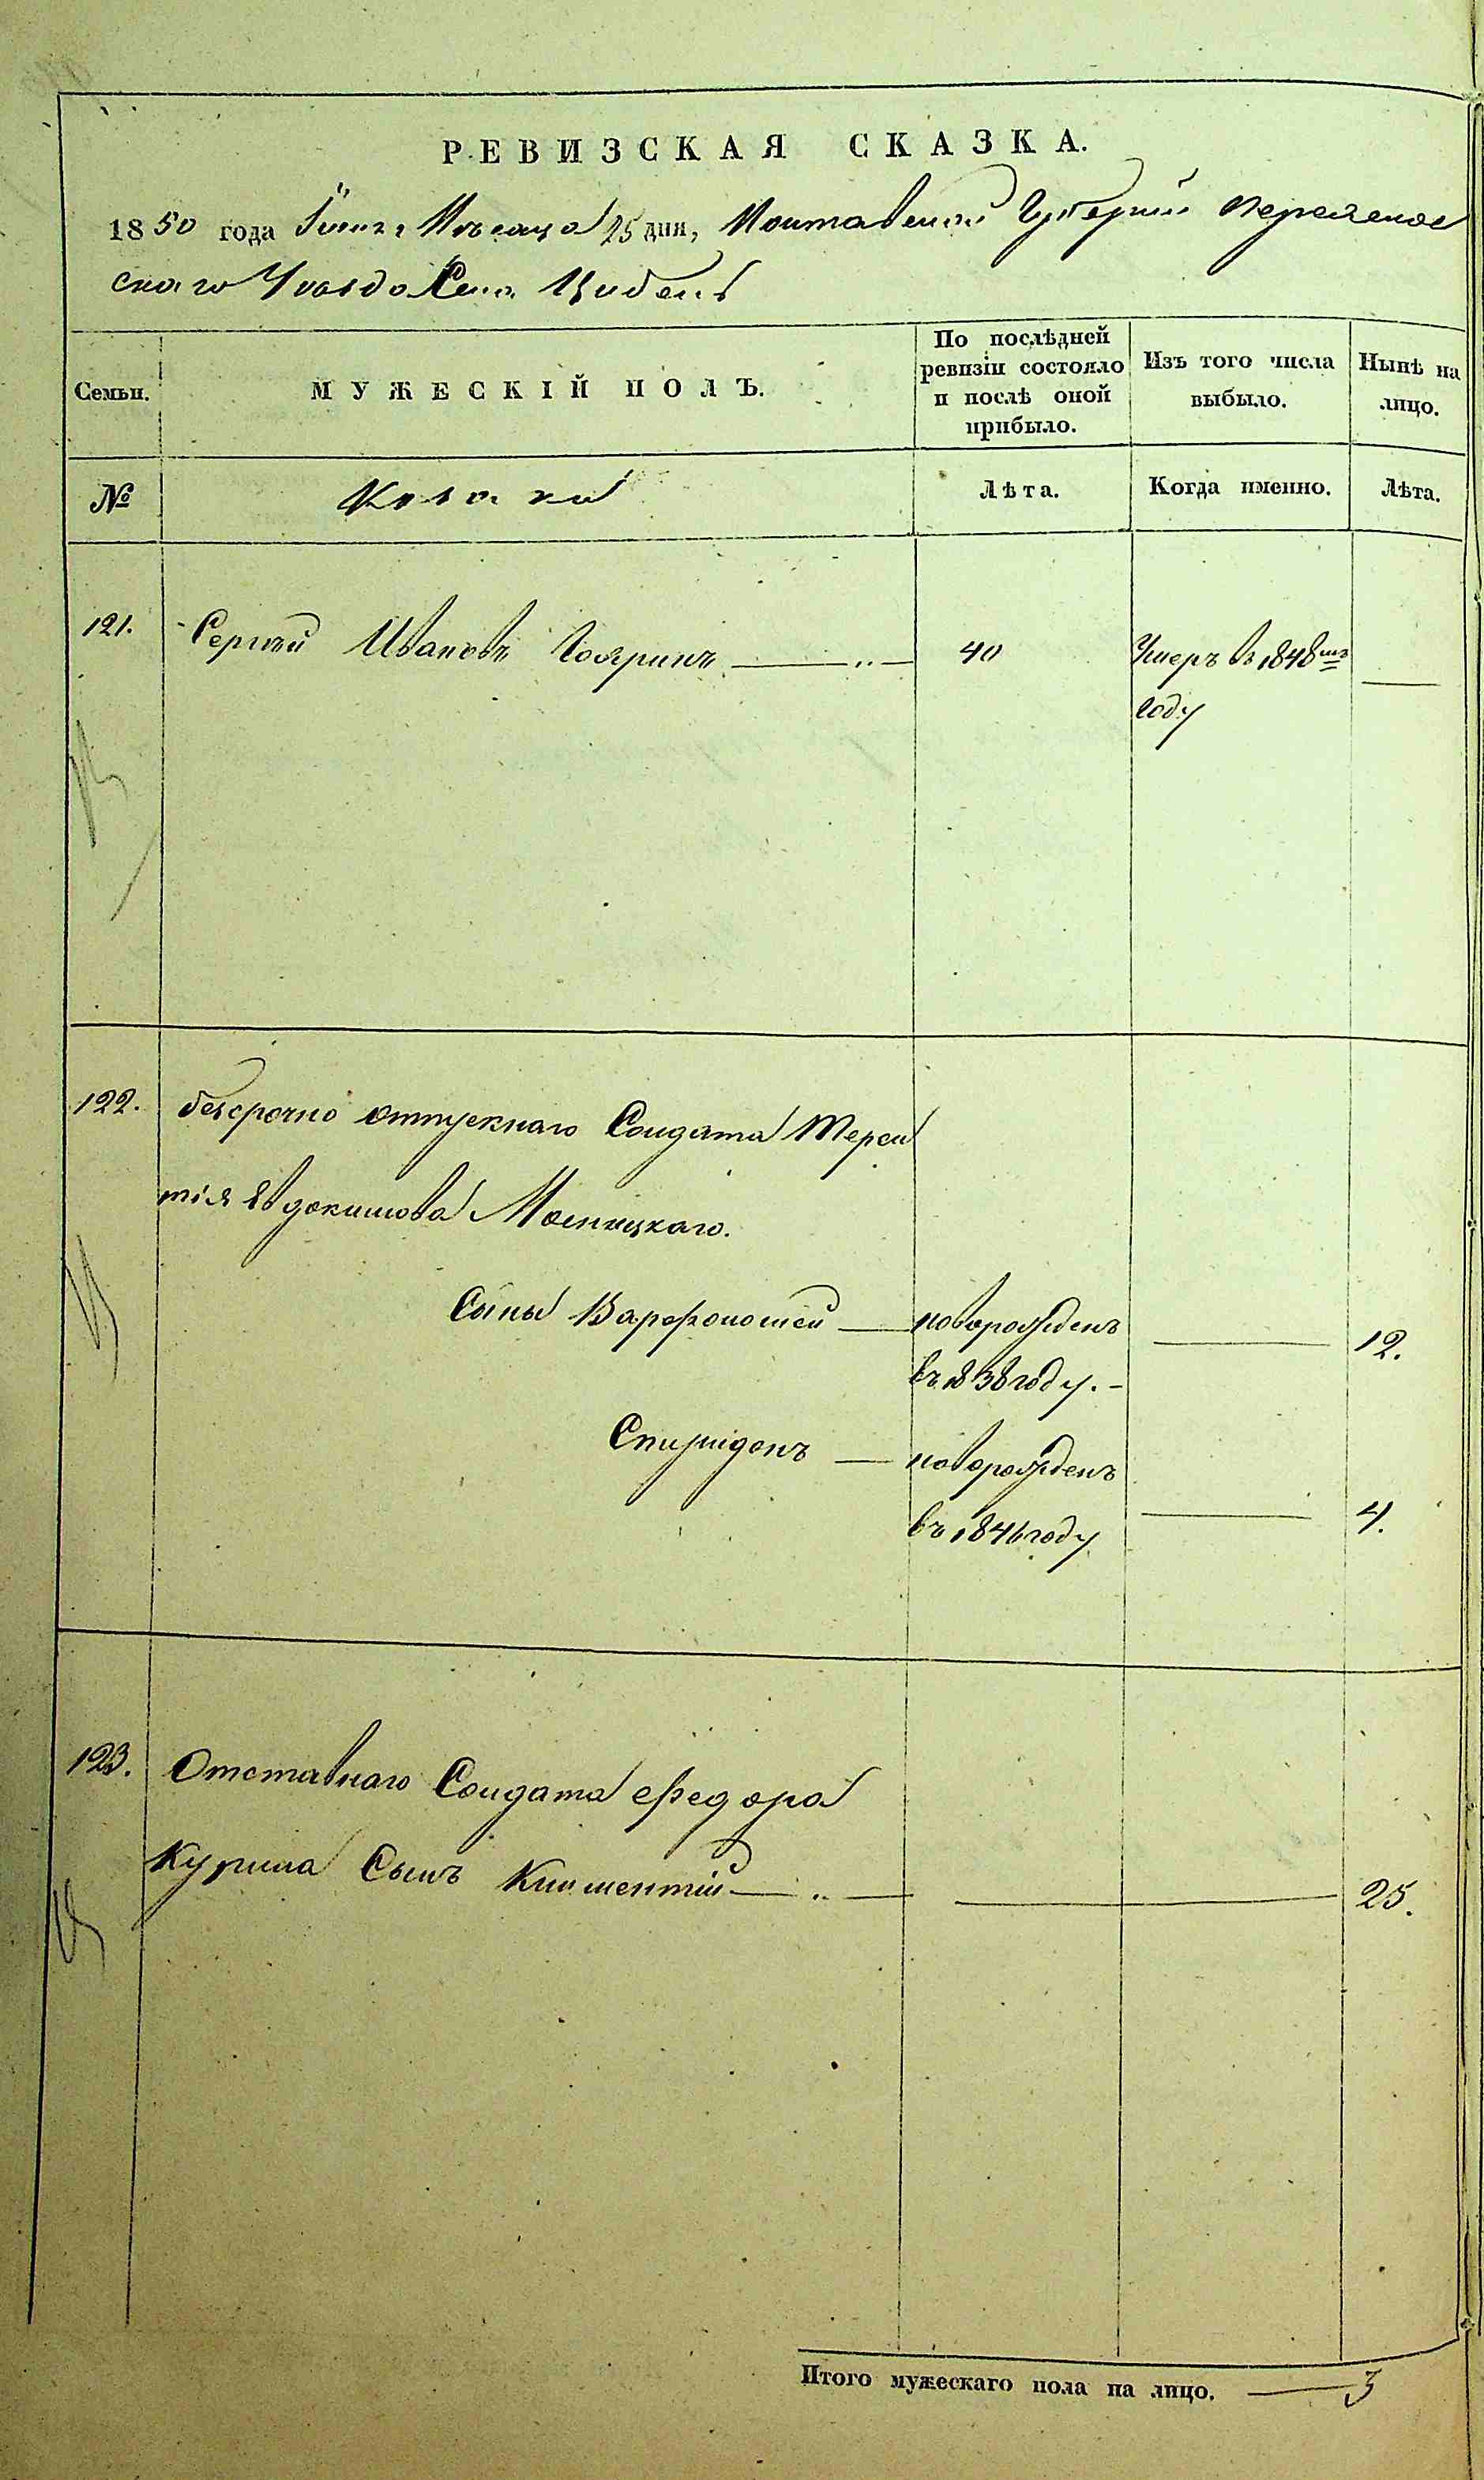 РЕВИЗСКАЯ СКАЗКА.
1850 года Іюня Мѣсяца 25 дня, Полтавской Губерніи Переяслов
скаго Уѣзда Села Цибель
Семьи.
МУЖЕСКІЙ ПОЛЪ.
По послѣдней ревизіи состояло и послѣ оной прибыло.
Изъ того числа выбыло.
Нынѣ на лицо.
№
Козаки
Лѣта.
Когда именно.
Лѣта.
121. Сергѣй Ивановъ 40 Умеръ въ 1848мъ
году
122. безсрочно отпускнаго Солдата Терен
тія Евдокимова
Сыны Варфоломей новорожденъ 12.
въ 1838 году.
Спиридонъ новорожденъ
въ 1846 году 4.
123. Отставнаго Солдата Федора
Курила Сынъ Климентій 25.
Итого мужескаго пола на лицо. 3